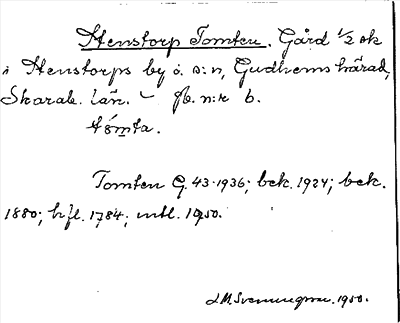 Stenstorp Tomten. Gård 1/2 ek
i Stenstorps by o. s:n, Gudhems härad,
Skarab. län. – fb. n:r 6.
tómta.
Tomten G. 43 1936; bek. 1924; bek.
1880; hfl. 1784; mtl. 1950.
J.M. Svenningson. 1950.